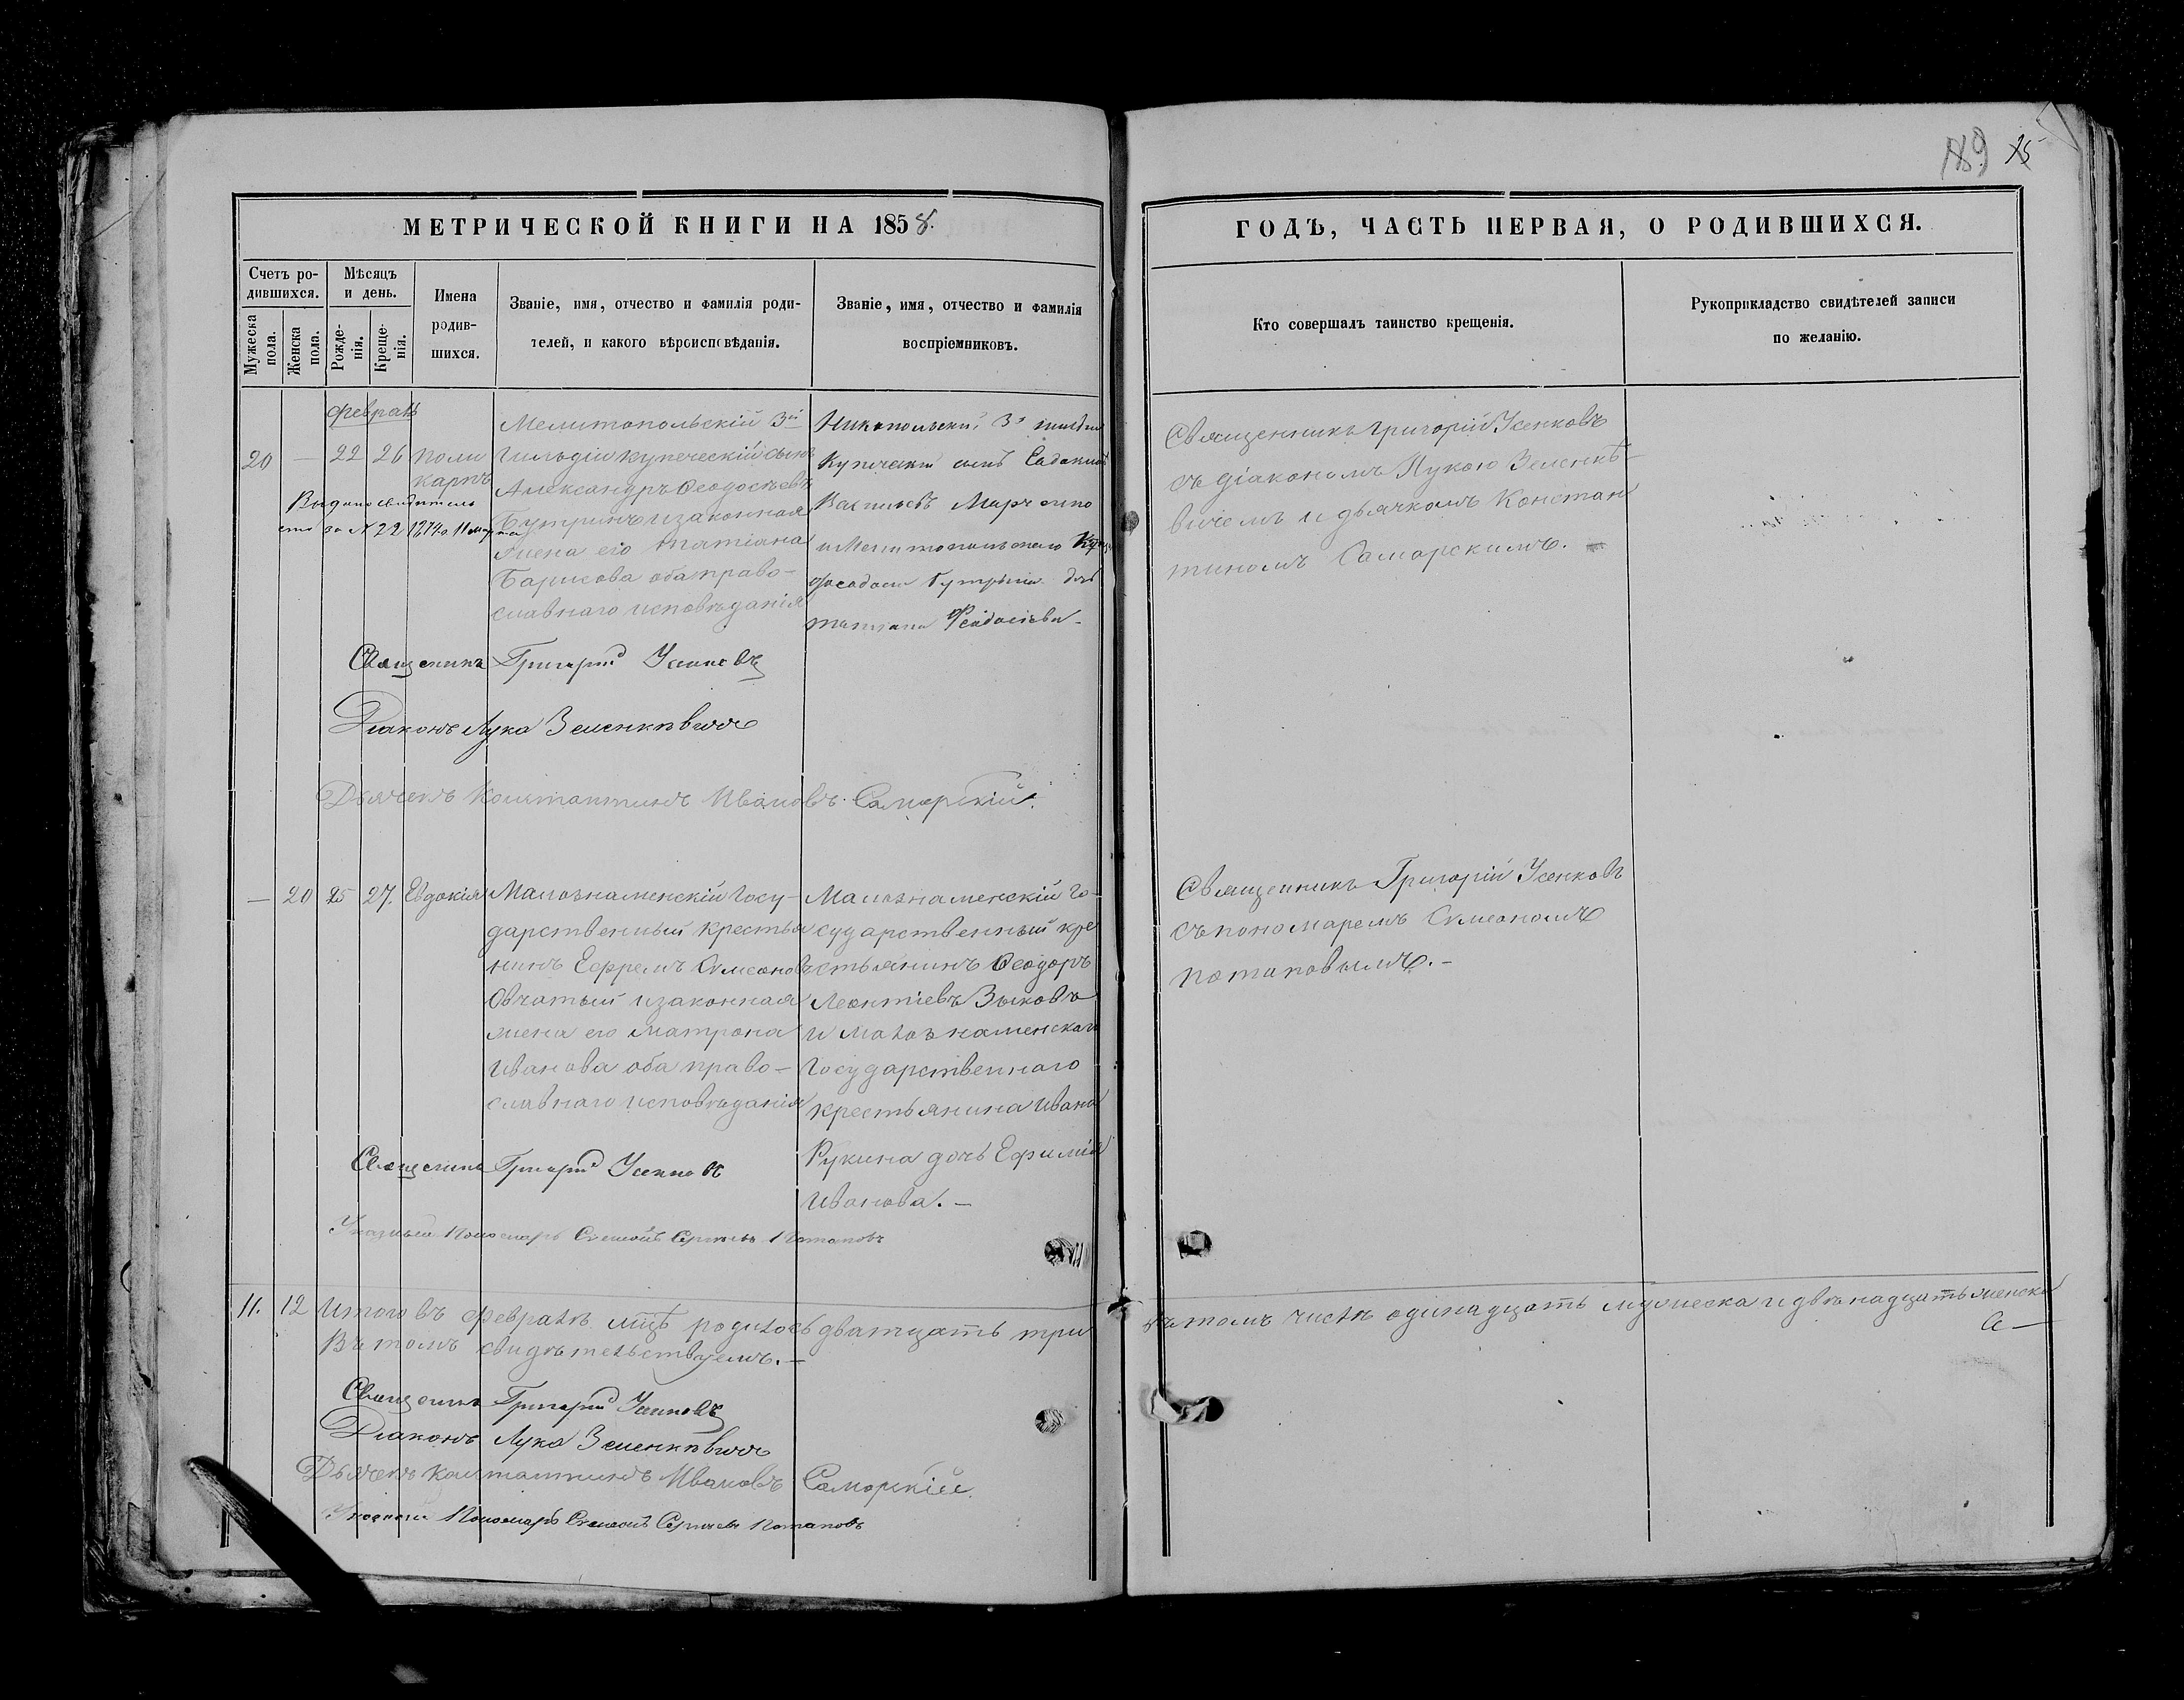 189 25
МЕТРИЧЕСКОЙ КНИГИ НА 1858.
ГОДЪ, ЧАСТЬ ПЕРВАЯ, О РОДИВШИХСЯ.
Счетъ ро-
дившихся.
Мужеска
пола.
Женска
пола.
Мѣсяцъ
и день.
Рожде-
нія.
Креще-
нія.
Имена
родив-
шихся.
Званіе, имя, отчество и фамилія роди-
телей, и какого вѣроисповѣданія.
Званіе, имя, отчество и фамилія
воспріемниковъ.
Кто совершалъ таинство крещенія.
Рукоприкладство свидѣтелей записи
по желанію.
февраль
20 — 22 26 Поли
карпъ
Выдано свидѣтель
ство за № 22 1874 г. 11 марта
Мелитопольскій 3й
Гильдіи купеческій сынъ
Александръ Ѳеодосѣевъ
Бутринъ и законная
жена его Татіана
Борисова оба право-
славнаго исповѣданія
Никопольскій 3й гильдіи
Купеческій сынъ Евдокимъ
Васильевъ Марченко
и Мелитопольскаго
Феодосія Бутрина дочь
Татіана Феодосіева
Священникъ Григорій Усенковъ
съ діакономъ Лукою Зеленкѣ-
вичемъ и дьячкомъ Констан
тиномъ Самарскимъ.
Священникъ Григорій Усенковъ
Діаконъ Лука Зеленкѣвичъ
Дьячекъ Константинъ Ивановъ Самарскій.
— 20 25 27. Евдокія
Малознаменскій Госу-
дарственный крестья
нинъ Ефремъ Симеоновъ
Овчатый и законная
жена его Матрона
Иванова оба право-
славнаго исповѣданія
Малознаменскій Го-
сударственный кре
стьянинъ Ѳеодоръ
Леонтіевъ Зыковъ
и Малознаменскаго
Государственнаго
крестьянина Ивана
Рукина дочь Ефимія
Иванова. —
Священникъ Григорій Усенковъ
съ пономаремъ Симеономъ
Потаповымъ. —
Священникъ Григорій Усенковъ
Указный Пономарь Симеонъ Сергѣевъ Потаповъ
11. 12 Итого въ февралѣ мцѣ родилось дватцать три
въ томъ числѣ одинадцать мужеска и двѣнадцать женска
Въ томъ свидѣтельствуемъ. —
Священникъ Григорій Усенковъ
Діаконъ Лука Зеленкѣвичъ
Дьячекъ Константинъ Ивановъ Самарскій
Указный Пономарь Симеонъ Сергѣевъ Потаповъ